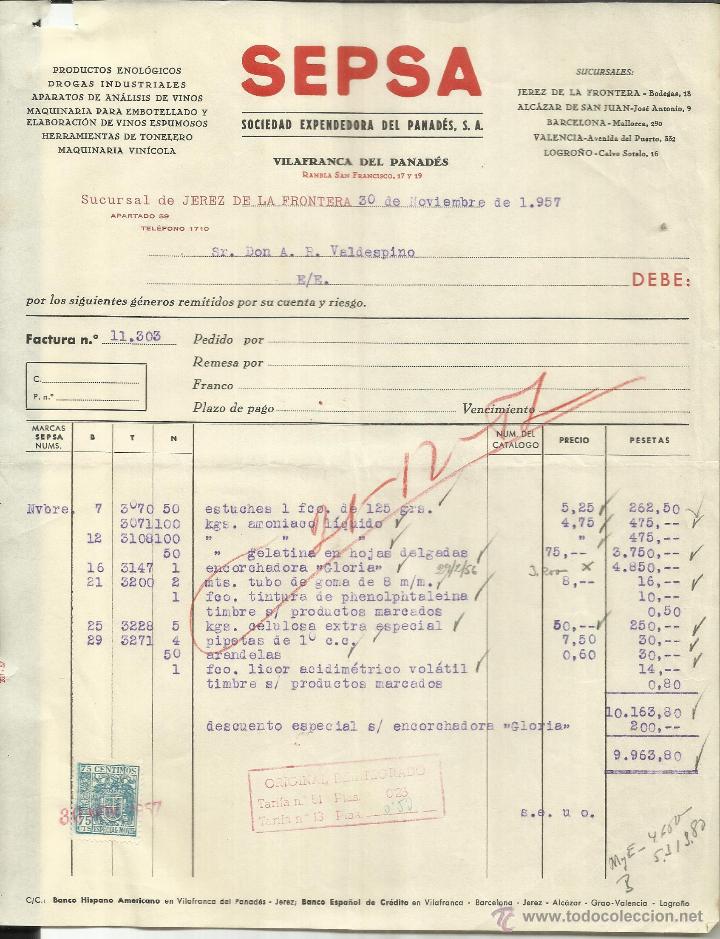 PRODUCTOS ENOLÓGICOS
DROGAS INDUSTRIALES
APARATOS DE ANÁLISIS DE VINOS
MAQUINARIA PARA EMBOTELLADO Y
ELABORACIÓN DE VINOS ESPUMOSOS
HERRAMIENTAS DE TONELERO
MAQUINARIA VINÍCOLA
SEPSA
SOCIEDAD EXPENDEDORA DEL PANADÉS, S. A.
VILAFRANCA DEL PANADÉS
RAMBLA SAN FRANCISCO, 17 Y 19
SUCURSALES:
JEREZ DE LA FRONTERA - Bodegas, 18
ALCÁZAR DE SAN JUAN-José Antonio, 9
BARCELONA - Mallorca, 290
VALENCIA-Avenida del Puerto, 332
LOGROÑO - Calvo Sotelo, 16
Sucursal de JEREZ DE LA FRONTERA 30 de Noviembre de 1.957
APARTADO 59
TELÉFONO 1710
Sr. Don A. R. Valdespino
E/E. DEBE:
por los siguientes géneros remitidos por su cuenta y riesgo.
Factura n.º 11.303
Pedido por
Remesa por
C.
Franco
P. n.º
Plazo de pago Vencimiento
21-12-57
MARCAS SEPSA NUMS. B T N NUM. DEL CATÁLOGO PRECIO PESETAS
Nvbre. 7 3070 50 estuches 1 fco. de 125 grs. 5,25 262,50
3071 100 kgs. amoniaco líquido 4,75 475,--
12 3108 100 " " " " 475,--
50 " gelatina en hojas delgadas 75,-- 3.750,--
16 3147 1 encorchadora "Gloria" 3.200 x 4.850,--
21 3200 2 mts. tubo de goma de 8 m/m. 8,-- 16,--
1 fco. tintura de phenolphtaleina 10,--
timbre s/ productos marcados 0,50
25 3228 5 kgs. celulosa extra especial 50,-- 250,--
29 3271 4 pipetas de 1º c.c. 7,50 30,--
50 arandelas 0,60 30,--
1 fco. licor acidimétrico volátil 14,--
timbre s/ productos marcados 0,80
10.163,80
descuento especial s/ encorchadora "Gloria" 200,--
9.963,80
75 CENTIMOS
75
ESPECIAL MOVIL
ORIGINAL REINTEGRADO
Tarifa n.º 81 Ptas. 0'25
Tarifa n.º 13 Ptas. 0'50
s. e. u o.
MyE - 4600
5.313.80
B
C/C.: Banco Hispano Americano en Vilafranca del Panadés - Jerez; Banco Español de Crédito en Vilafranca - Barcelona - Jerez - Alcázar - Grao-Valencia - Logroño
www.todocoleccion.net